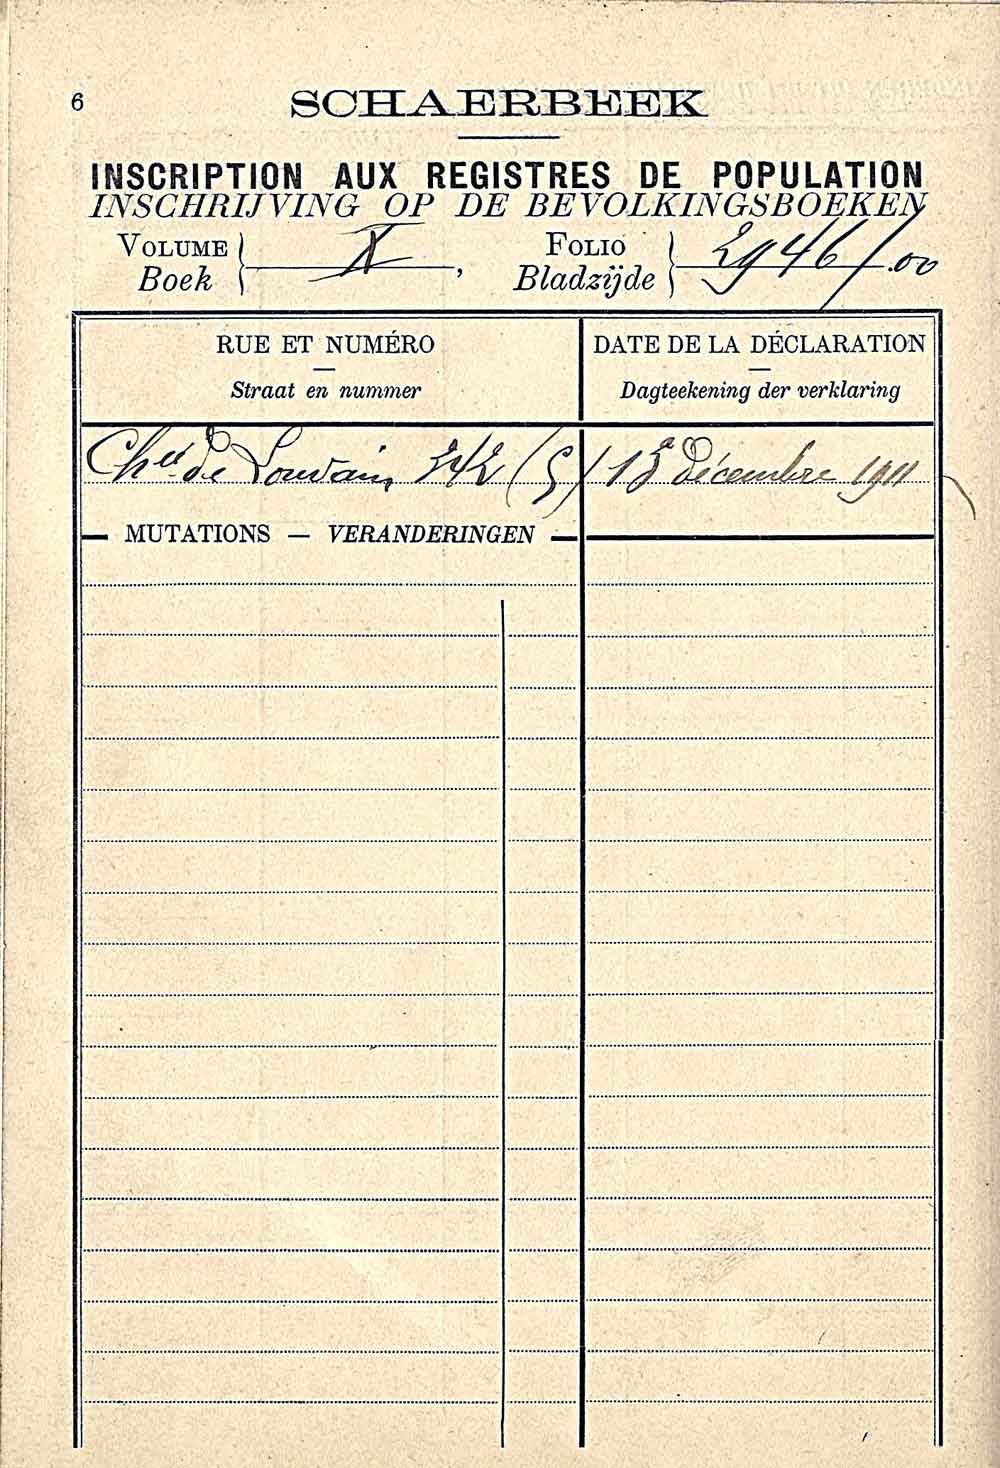 6
SCHAERBEEK
INSCRIPTION AUX REGISTRES DE POPULATION
INSCHRIJVING OP DE BEVOLKINGSBOEKEN
VOLUME X, FOLIO 2946/00
Boek Bladzijde
RUE ET NUMÉRO DATE DE LA DÉCLARATION
Straat en nummer Dagteekening der verklaring
Chée de Louvain 342 (S) 13 Décembre 1911
MUTATIONS — VERANDERINGEN